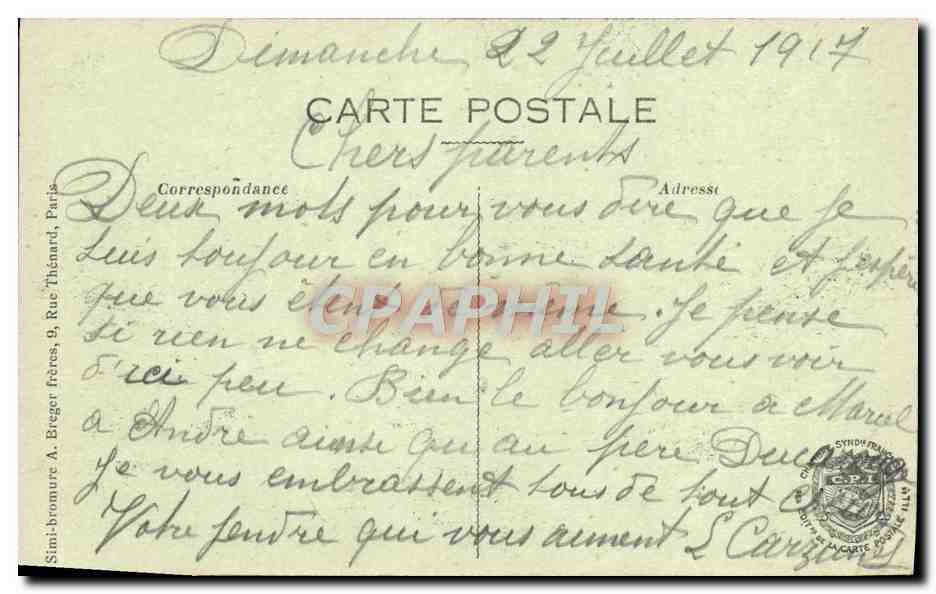 Dimanche 22 Juillet 1917
CARTE POSTALE
Chers parents
Correspondance
Adresse
Deux mots pour vous dire que je
suis toujour en bonne santé et j'espère
que vous êtent de meme. Je pense
si rien ne change aller vous voir
d'ici peu. Bien le bonjour a Marcel
a André ainsi qu au père
Je vous embrassent tous de tout
Votre fendre qui vous aiment L
Simi-bromure A. Breger frères, 9, Rue Thénard, Paris
CPAPHIL
C.P.I
DE LA CARTE POSTALE ILLée